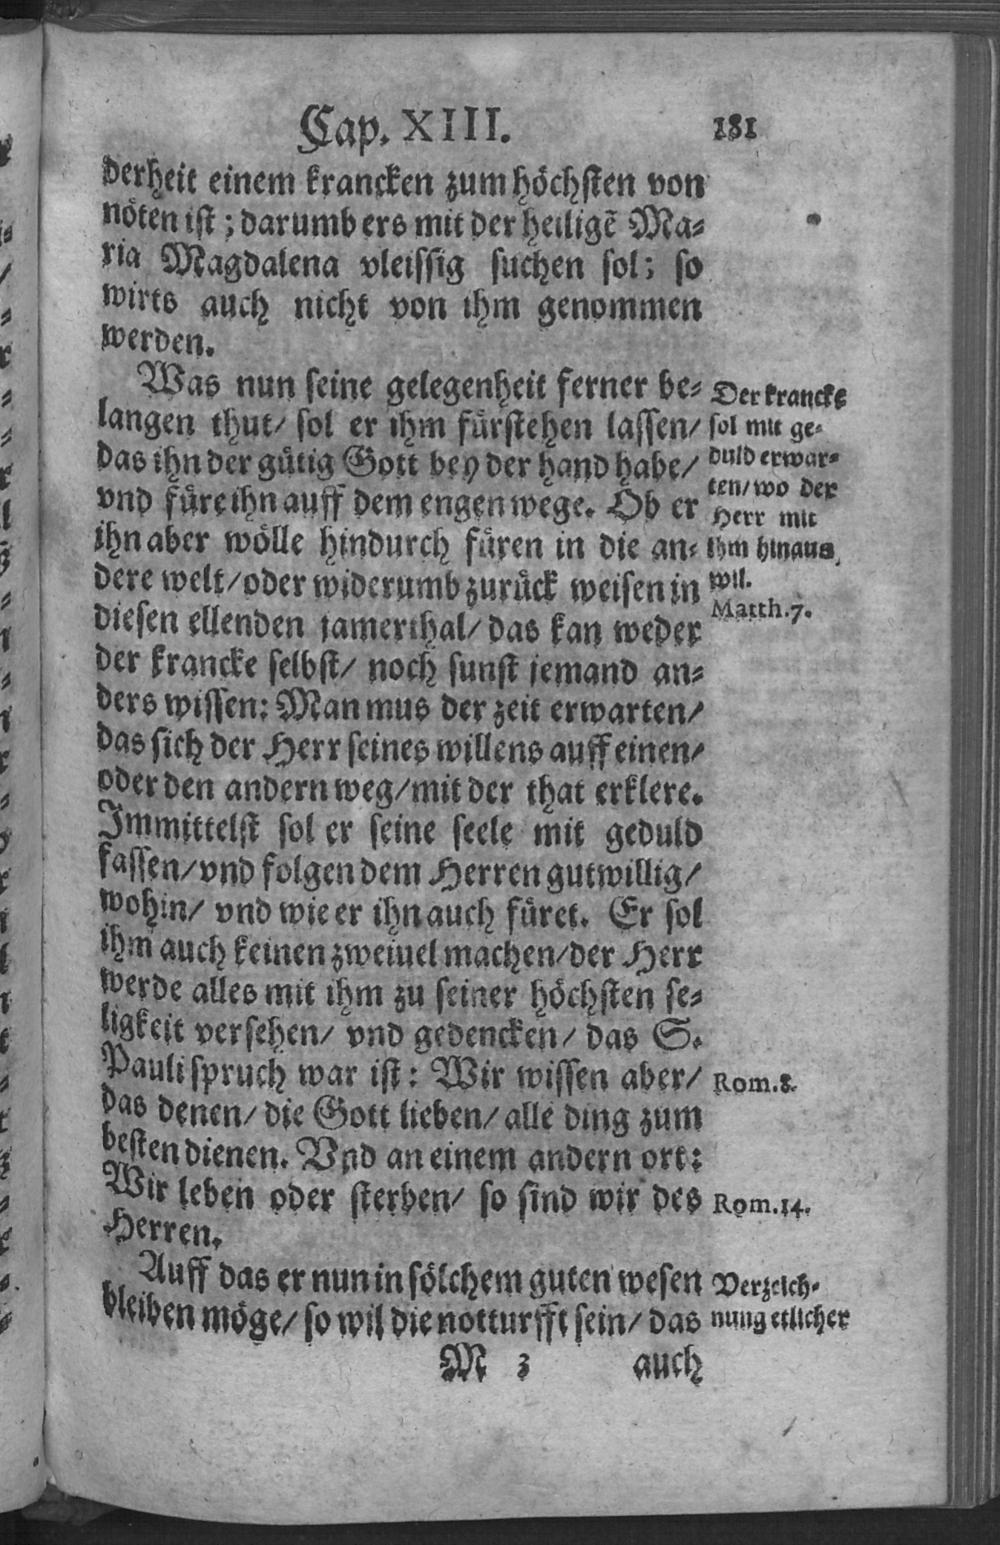 Cap. XIII. 181
derheit einem krancken zum höchsten von
nöten ist; darumb ers mit der heiligē Ma-
ria Magdalena vleissig suchen sol; so
wirts auch nicht von ihm genommen
werden.
Was nun seine gelegenheit ferner be-
langen thut/ sol er ihm fürstehen lassen/
das ihn der gütig Gott bey der hand habe/
vnd füre ihn auff dem engen wege. Ob er
ihn aber wölle hindurch füren in die an-
dere welt/oder widerumb zurück weisen in
diesen ellenden jamerthal/ das kan weder
der krancke selbst/ noch sunst jemand an-
ders wissen: Man mus der zeit erwarten/
das sich der Herr seines willens auff einen/
oder den andern weg/mit der that erklere.
Immittelst sol er seine seele mit geduld
fassen/vnd folgen dem Herren gutwillig/
wohin/ vnd wie er ihn auch füret. Er sol
ihm auch keinen zweiuel machen/der Herr
werde alles mit ihm zu seiner höchsten se-
ligkeit versehen/ vnd gedencken/ das S.
Pauli spruch war ist: Wir wissen aber/
das denen/ die Gott lieben/ alle ding zum
besten dienen. Vnd an einem andern ort:
Wir leben oder sterben/ so sind wir des
Herren.
Auff das er nun in sölchem guten wesen
bleiben möge/ so wil die notturfft sein/ das
M 3 auch
Der krancke
sol mit ge-
duld erwar-
ten/wo der
Herr mit
ihm hinaus
wil.
Matth.7.
Rom.8.
Rom.14.
Verzeich-
nung etlicher